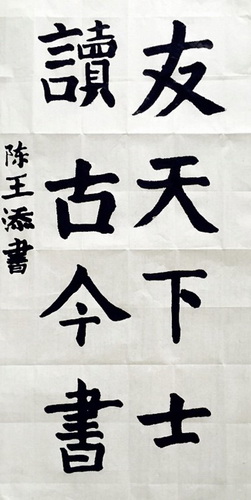 友天下士
讀古今書
陈王添書